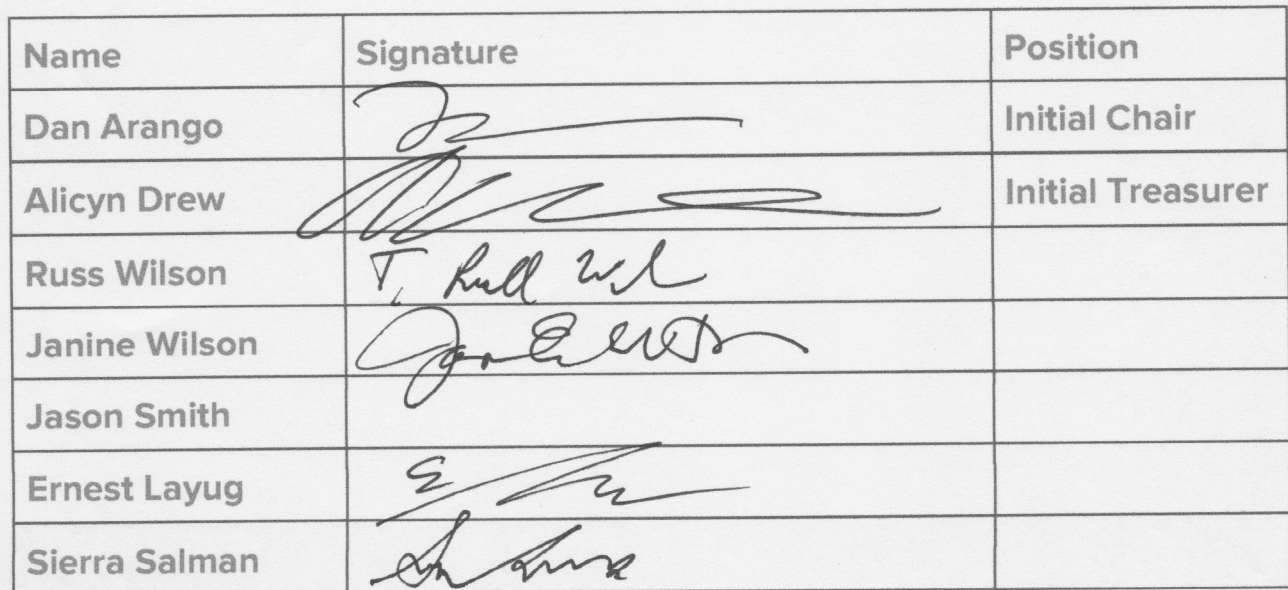 Name Signature Position
Dan Arango Initial Chair
Alicyn Drew Initial Treasurer
Russ Wilson T.
Janine Wilson
Jason Smith
Ernest Layug
Sierra Salman